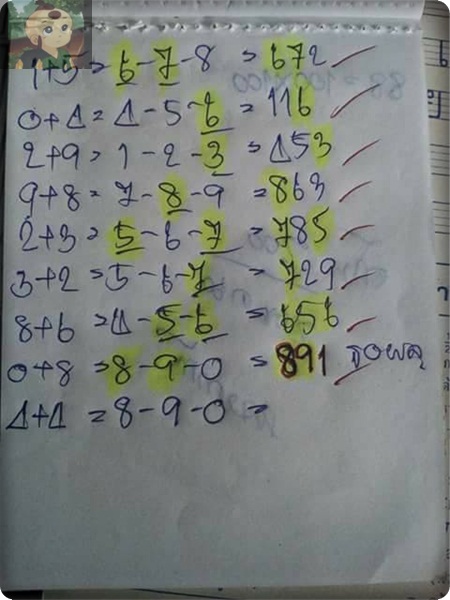 1+5 = 6-7-8 = 672
0+4 = 4-5-6 = 116
2+9 = 1-2-3 = 453
9+8 = 7-8-9 = 863
2+3 = 5-6-7 = 785
3+2 = 5-6-7 = 729
8+6 = 4-5-6 = 656
0+8 = 8-9-0 = 891 รอผล
4+4 = 8-9-0 =